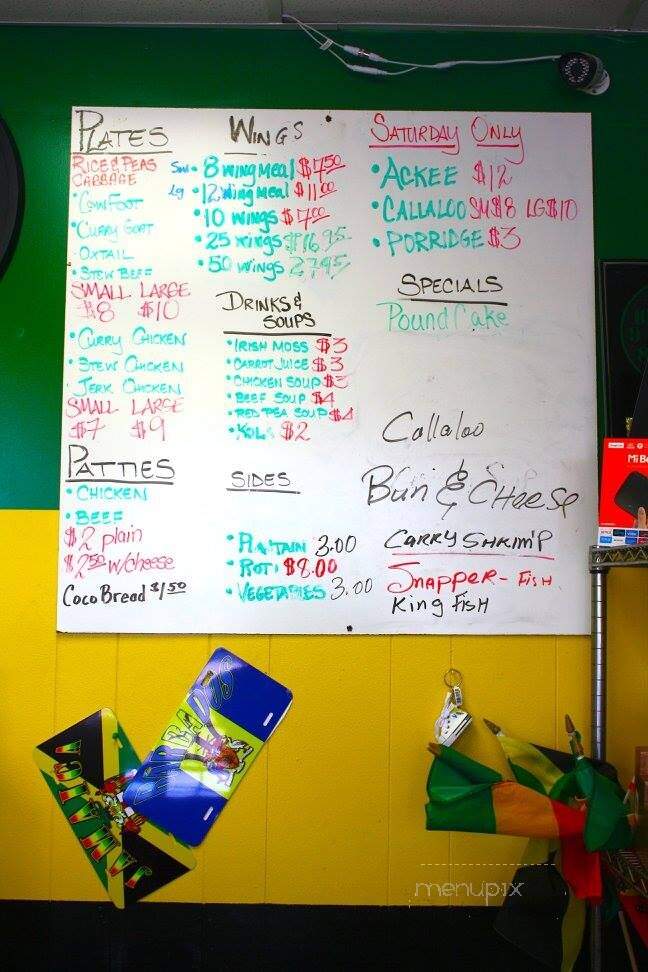 PLATES
RICE & PEAS
CABBAGE
• COW FOOT
• CURRY GOAT
OXTAIL
• STEW BEEF
SMALL LARGE
$8 $10
• CURRY CHICKEN
• STEW CHICKEN
JERK CHICKEN
SMALL LARGE
$7 $9
PATTIES
• CHICKEN
• BEEF
$2 plain
$2.50 w/cheese
Coco Bread $1.50
WINGS
Sm • 8 wing meal $7.50
Lg • 12 wing meal $11.00
• 10 wings $7.00
• 25 wings $16.95
• 50 wings 27.95
DRINKS &
SOUPS
• IRISH MOSS $3
• CARROT JUICE $3
• CHICKEN SOUP $3
• BEEF SOUP $4
• RED PEA SOUP $4
• $2
SIDES
• 3.00
• ROTI $8.00
• VEGETABLES 3.00
SATURDAY ONLY
• ACKEE $12
• CALLALOO SM $8 LG $10
• PORRIDGE $3
SPECIALS
Pound Cake
Callaloo
Bun & CHEESE
CURRY SHRIMP
SNAPPER - FISH
King FISH
BARBADOS
JAMAICA
menupix